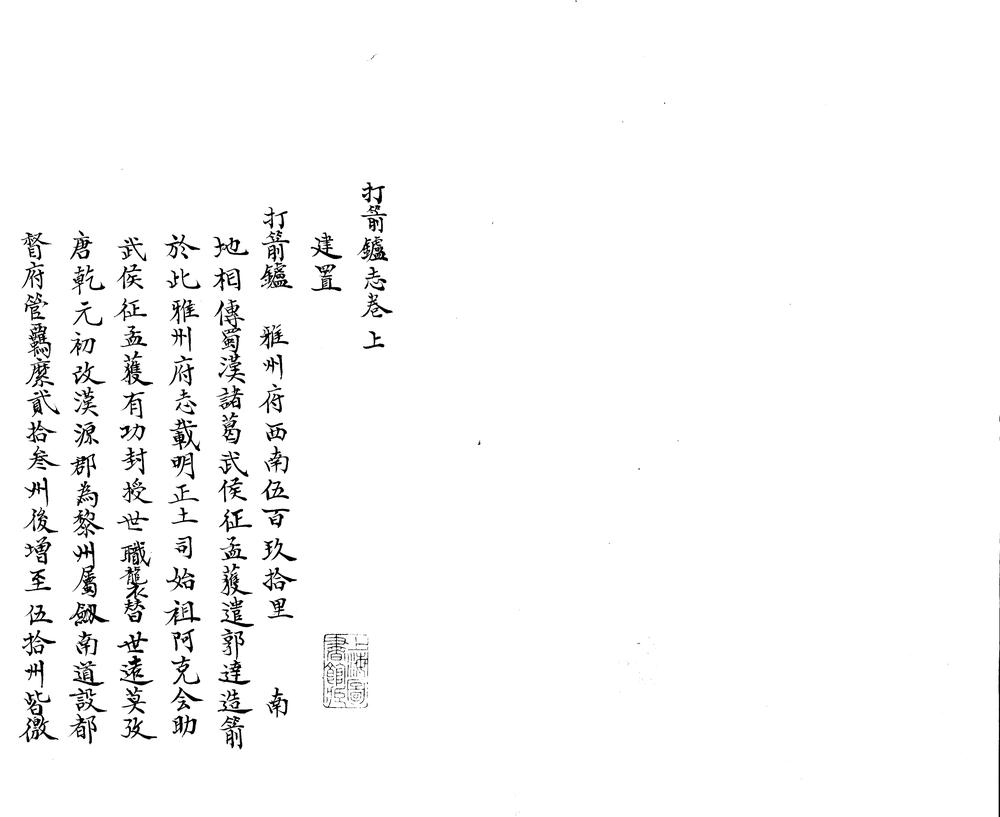 打箭鑪志卷上
建置
打箭鑪　雅州府西南伍百玖拾里　南
地相傳蜀漢諸葛武侯征孟獲遣郭達造箭
於此雅州府志載明正土司始祖阿克会助
武侯征孟獲有功封授世職襲替世遠莫攷
唐乾元初改漢源郡為黎州屬劔南道設都
督府管羈縻貳拾叁州後增至伍拾州皆徼
上海圖
書館印